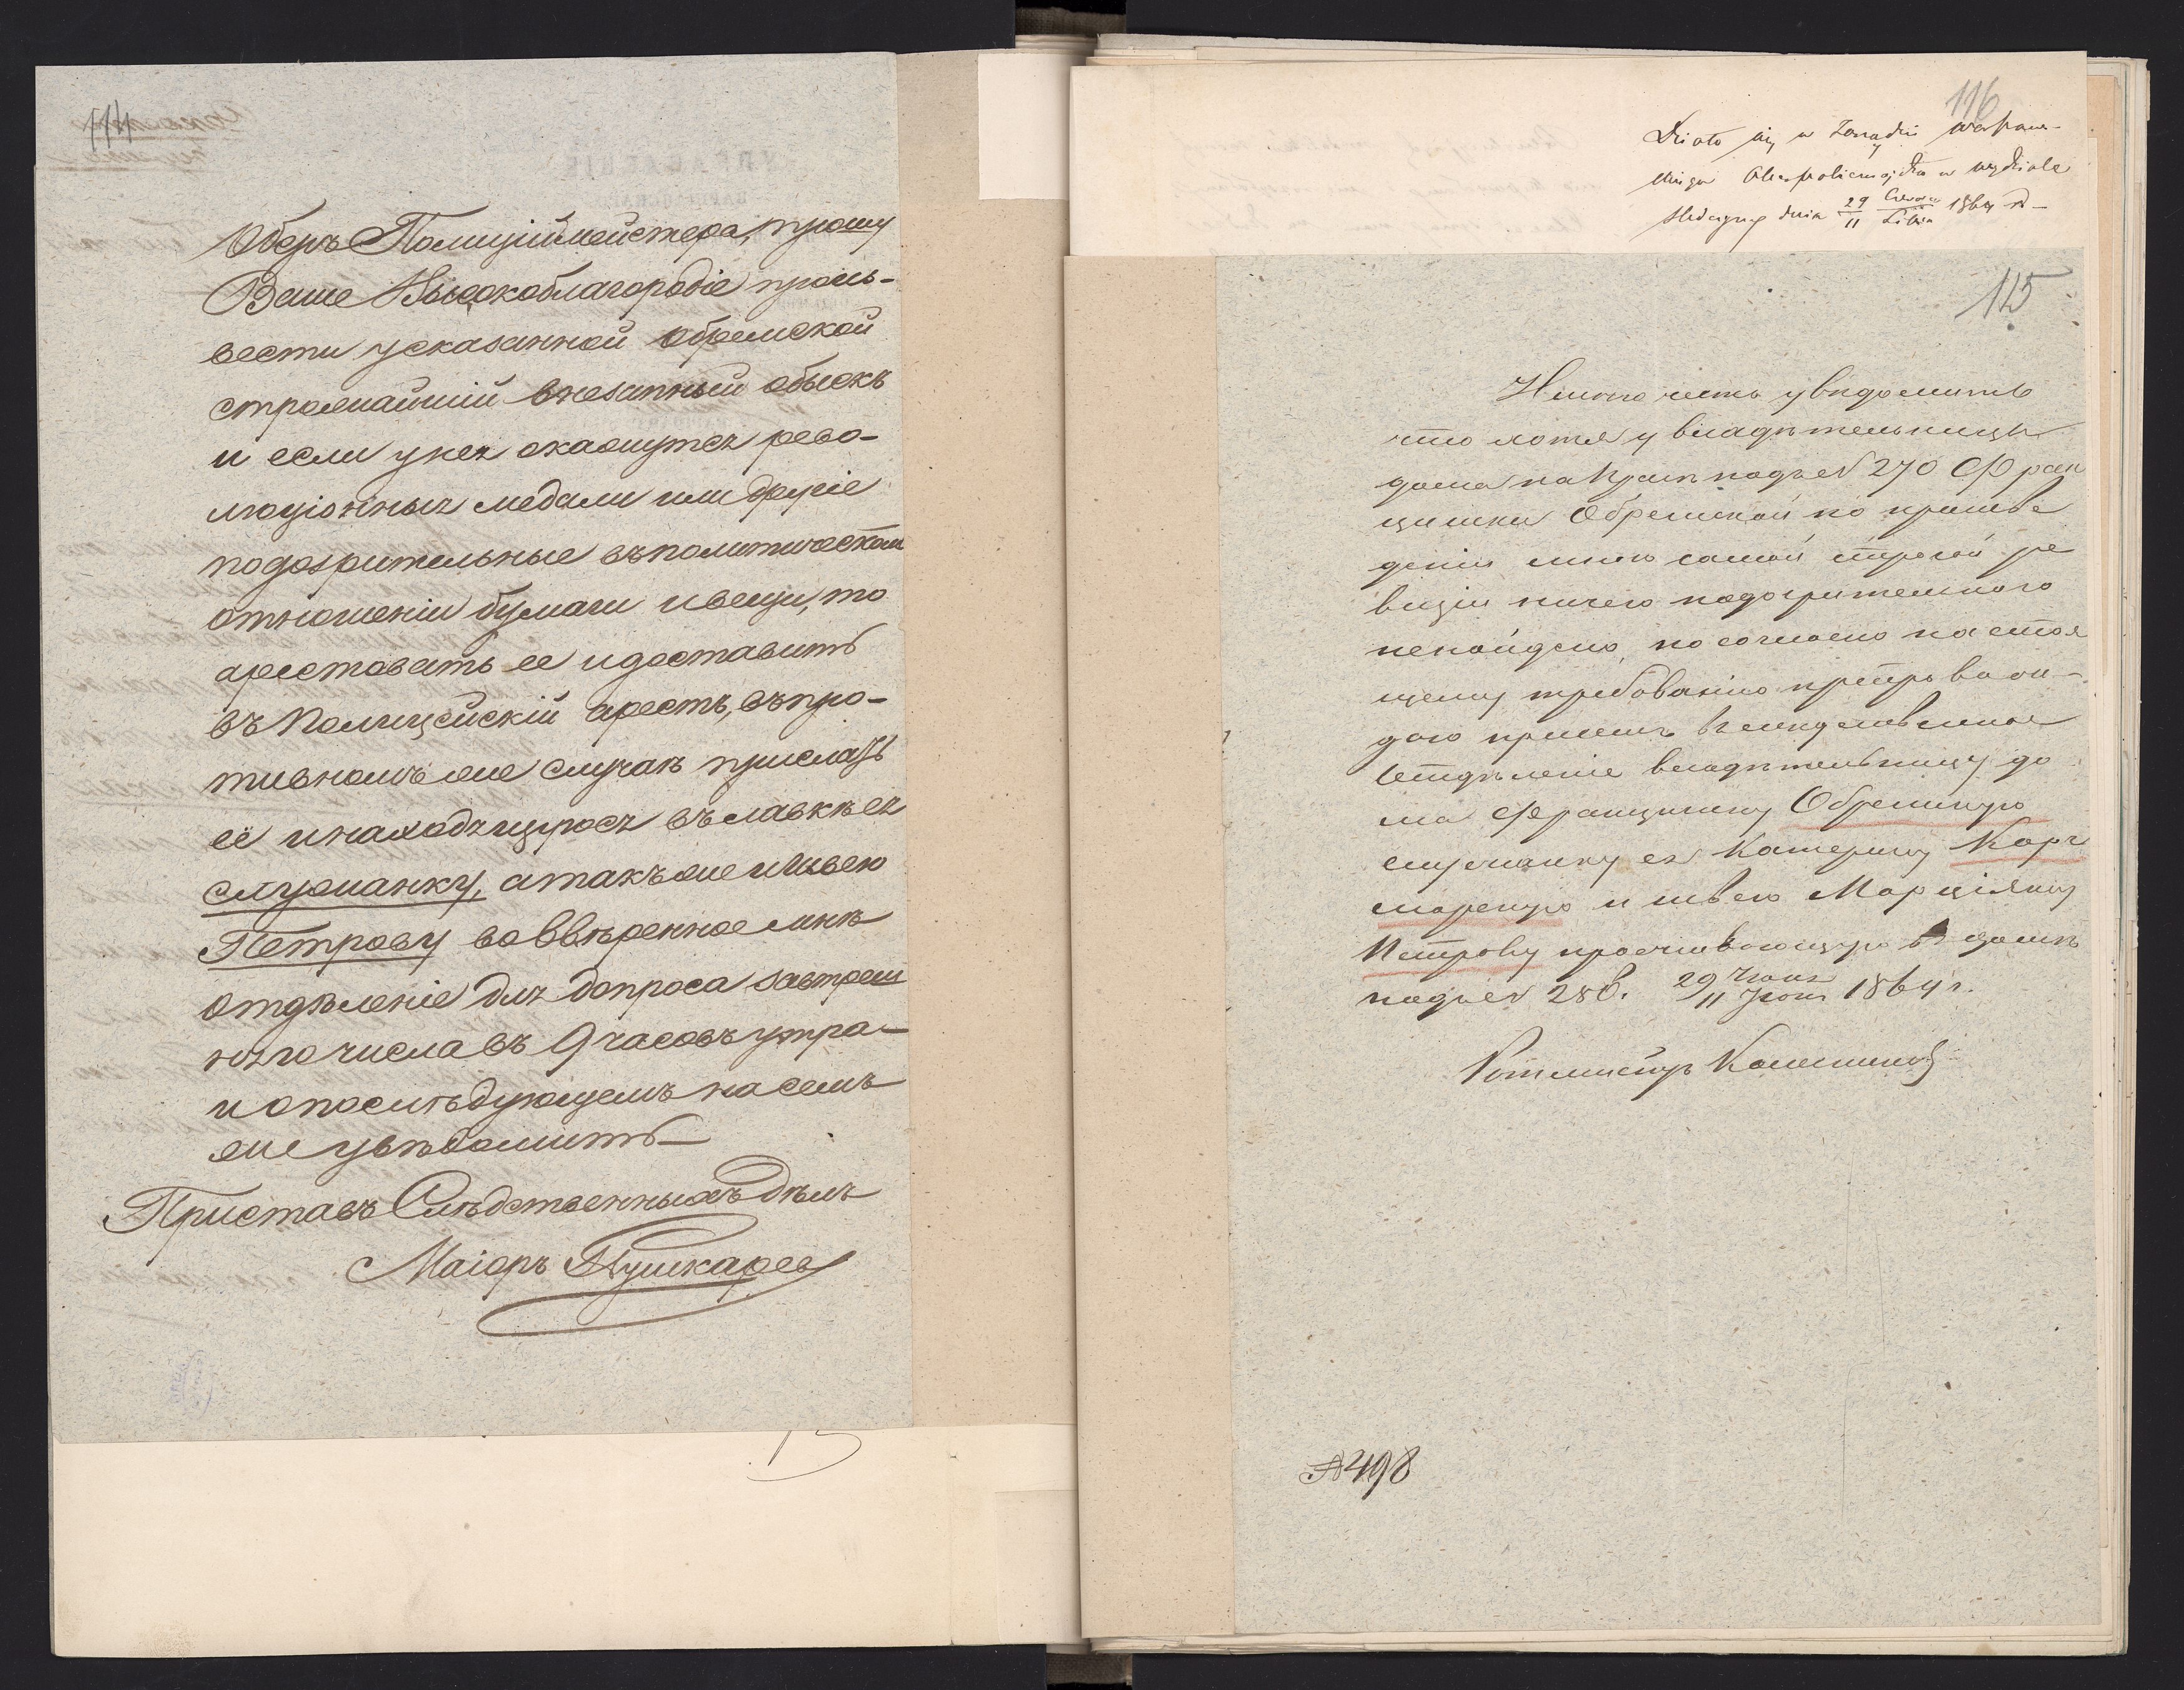 114
Оберъ Полиціймейстера, прошу
Ваше Высокоблагородіе произ-
вести у сказанной Обремской
строжайшій внезапный обыскъ
и если у нея окажутся рево-
люціонныя медали или другіе
подозрительные въ политическом
отношеніи бумаги и вещи, то
арестовать ее и доставить
въ Полицейскій арестъ, въ про-
тивномъ же случаѣ прислать
её и находящуюся въ лавкѣ ея
служанку, а также и швею
Петрову во ввѣренное мнѣ
отдѣленіе для допроса завтреш
няго числа въ 9 часовъ утра
и о послѣдующемъ на семъ
же увѣдомить
Приставъ Слѣдственныхъ дѣлъ
Маіоръ Пушкарев
116
Działo się w Zarządzie Warszaw-
skiego Oberpolicmajstra w wydziale
śledczym dnia 29/11 Czerwca/Lipca 1864 r.
115
Имѣю честь увѣдомить
что хотя у владѣтельницы
дома на Прагѣ подъ № 270 Фран
цишки Обремской по произве
деніи мною самой строгой ре
визіи ничего подозрительного
ненайдено, но согласно настоя
щему требованію препровож-
даю при семъ в Слѣдственное
Отдѣленіе владѣтельницу до
ма Францишку Обремскую
служанку ея Катерину Карч
марскую и швею Марціяну
Петрову проживающую въ домѣ
подъ № 288. 29 Іюня/11 Іюля 1864 г.
Ротмистръ
№ 498